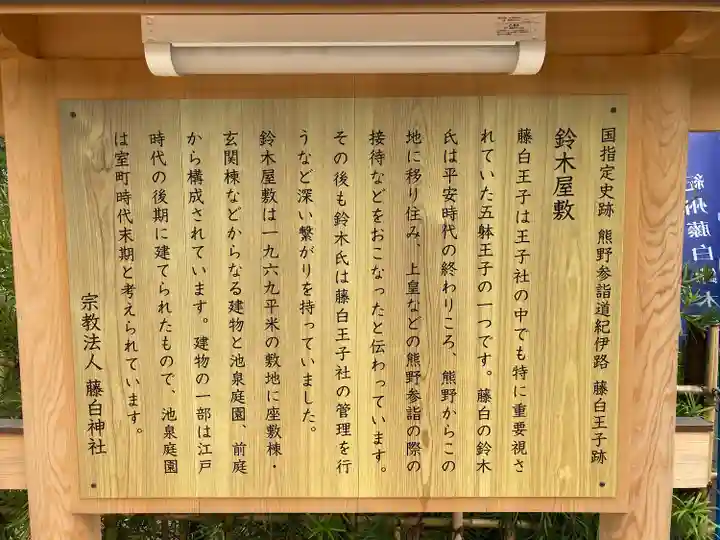 国指定史跡 熊野参詣道紀伊路 藤白王子跡
鈴木屋敷
藤白王子は王子社の中でも特に重要視さ
れていた五躰王子の一つです。藤白の鈴木
氏は平安時代の終わりころ、熊野からこの
地に移り住み、上皇などの熊野参詣の際の
接待などをおこなったと伝わっています。
その後も鈴木氏は藤白王子社の管理を行
うなど深い繋がりを持っていました。
鈴木屋敷は一九六九平米の敷地に座敷棟・
玄関棟などからなる建物と池泉庭園、前庭
から構成されています。建物の一部は江戸
時代の後期に建てられたもので、池泉庭園
は室町時代末期と考えられています。
宗教法人 藤白神社
紀州藤白